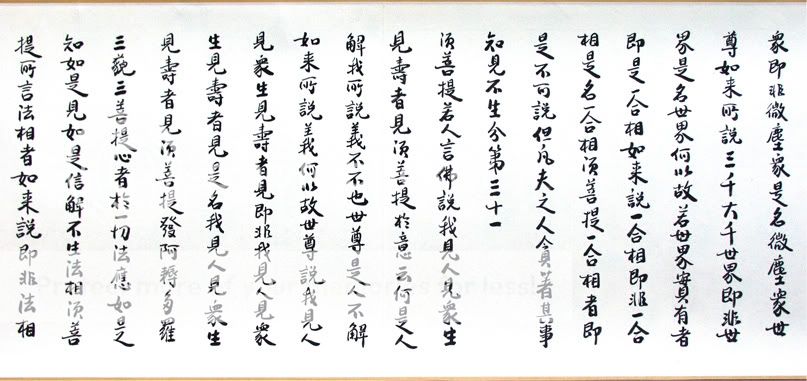 眾即非微塵眾是名微塵眾世
尊如來所說三千大千世界即非世
界是名世界何以故若世界實有者
即是一合相如來說一合相即非一合
相是名一合相須菩提一合相者即
是不可說但凡夫之人貪著其事
知見不生分第三十一
須菩提若人言佛說我見人見眾生
見壽者見須菩提於意云何是人
解我所說義不不也世尊是人不解
如來所說義何以故世尊說我見人
見眾生見壽者見即非我見人見眾
生見壽者見是名我見人見眾生
見壽者見須菩提發阿耨多羅
三藐三菩提心者於一切法應如是
知如是見如是信解不生法相須菩
提所言法相者如來說即非法相